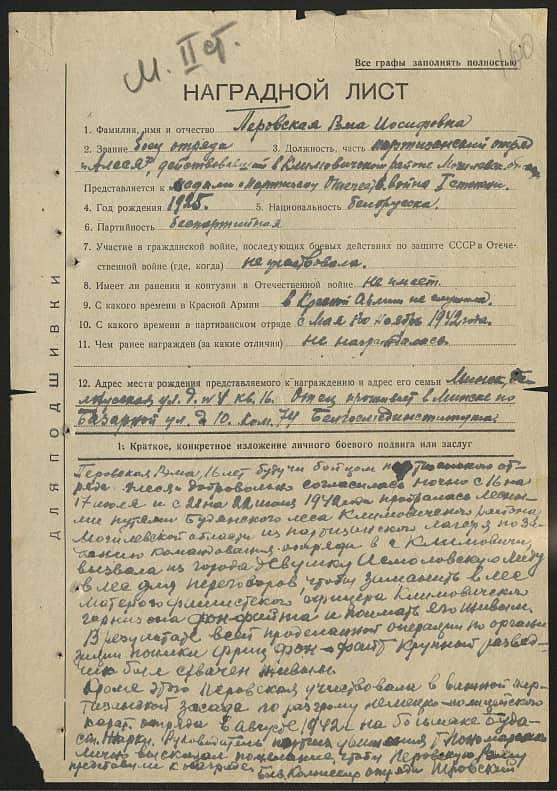 М. II ст.
160
Все графы заполнять полностью
НАГРАДНОЙ ЛИСТ
1. Фамилия, имя и отчество Перовская Эма Иосифовна
2. Звание боец отряда 3. Должность, часть партизанский отряд
"Алеся", действовавший в Климовичском районе Могилевск.
Представляется к медали "Партизану Отечеств. война I степени.
4. Год рождения 1925. 5. Национальность белорусска.
6. Партийность беспартийная
7. Участие в гражданской войне, последующих боевых действиях по защите СССР в Отече-
ственной войне (где, когда) не участвовала.
8. Имеет ли ранения и контузии в Отечественной войне не имеет.
9. С какого времени в Красной Армии в Красной Армии не служила.
10. С какого времени в партизанском отряде с мая по ноябрь 1942 года.
11. Чем ранее награжден (за какие отличия) не награждалась.
12. Адрес места рождения представляемого к награждению и адрес его семьи Минск, Бе-
лорусская ул. д. № 4 кв. 16. Отец проживает в Минске по
Базарной ул. д 10. ком. 74
ДЛЯ ПОДШИВКИ
1. Краткое, конкретное изложение личного боевого подвига или заслуг
Перовская Эма, 16 лет будучи бойцом партизанского от-
ряда Алеся добровольно согласилась ночью с 16 на
17 июля и с 21 на 22 июля 1942 года пробралась лесны-
ми путями Будянского леса Климовичского района
Могилевской области из партизанского лагеря по за-
данию командования отряда в г Климовичи,
вызвала из города девушку Исмоловскую Лиду
в лес для переговоров, чтобы заманить в лес
матерого фашистского офицера Климовичского
гарнизона фон-файта и поймать его живым.
В результате всей проделанной операции по органи-
зации поимки фриц фон-файт крупный развед-
чик был схвачен живым.
Кроме этого Перовская участвовала в военной пар-
тизанской засаде по разгрому немецко-полицейского
карат. отряда в августе 1942 г. на большаке Буда-
ст. Жарки. Руководитель партиз движения т. Пономаренко
лично высказал пожелание, чтобы Перовскую Эму
представили к награде. Быв. Комиссар отряда Перовский